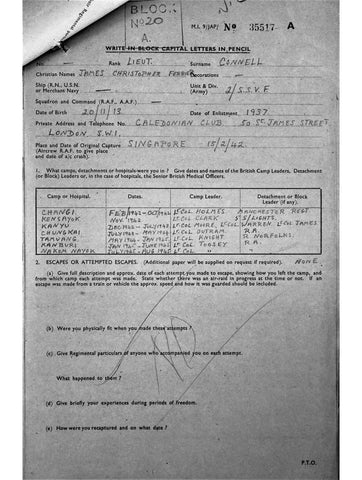 BLOCK
No 20
A.
M.I. 9/JAP/ No 35517 A
WRITE IN BLOCK CAPITAL LETTERS IN PENCIL
No. — Rank LIEUT. Surname CONNELL
Christian Names JAMES CHRISTOPHER FERRIER Decorations —
Ship (R.N., U.S.N. or Merchant Navy — Unit & Div. (Army) 2/S.S.V.F
Squadron and Command (R.A.F., A.A.F.) —
Date of Birth 20/11/13 Date of Enlistment 1937
Private Address and Telephone No. CALEDONIAN CLUB 50 ST. JAMES STREET
LONDON. S.W.1.
Place and Date of Original Capture SINGAPORE 15/2/42.
(Aircrew R.A.F. to give place
and date of a/c crash).
1. What camps, detachments or hospitals were you in? Give dates and names of the British Camp Leaders, Detachment
(or Block) Leaders or, in the case of hospitals, the Senior British Medical Officers.
Camp or Hospital. Dates. Camp Leader. Detachment or Block Leader (if any).
CHANGI FEB/1942-OCT/1942 LT COL HOLMES MANCHESTER REGT
KENSAYOK NOV 1942 LT COL CLARK
KANYU DEC 1942 - JULY 1943 LT COL WARREN LT COL JAMES
CHUNGKAI JULY 1943 - MAY 1944 LT COL OUTRAM. R.A.
TAMUANG MAY 1944 - JAN 1945 LT COL KNIGHT R. NORFOLKS.
KANBURI JAN 1945 - JUNE 1945 LT COL TOOSEY R.A.
NAKEM NAYOK JULY 1945 - AUG 1945 LT COL
2. ESCAPES OR ATTEMPTED ESCAPES. (Additional paper will be supplied on request if required). NONE
(a) Give full description and approx. date of each attempt you made to escape, showing how you left the camp, and
from which camp each attempt was made. State whether there was an air-raid in progress at the time or not. If an
escape was made from a train or vehicle the approx. speed and how it was guarded should be included.
(b) Were you physically fit when you made these attempts?
(c) Give Regimental particulars of anyone who accompanied you on each attempt.
What happened to them?
(d) Give briefly your experiences during periods of freedom.
(e) How were you recaptured and on what date?
P.T.O.